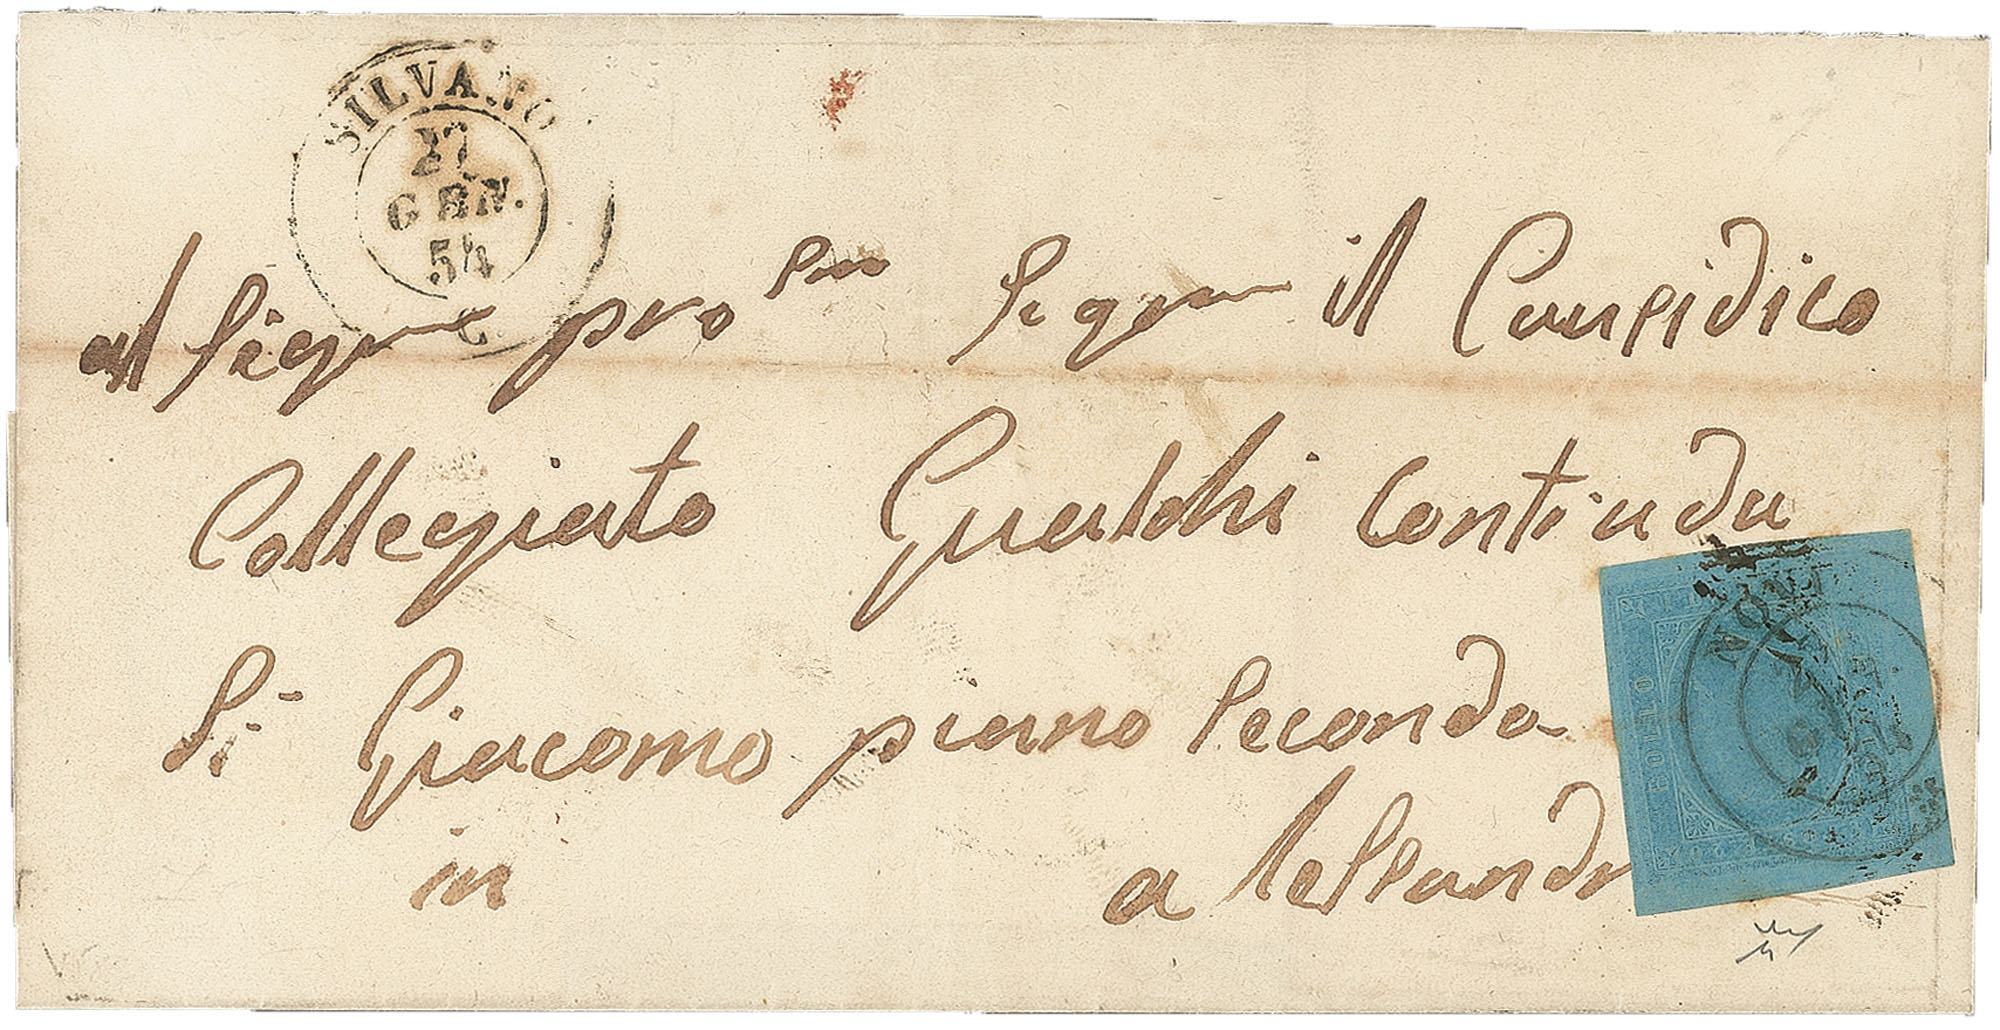 SILVANO
27
GEN.
54
al Sigr pro Sigr il Causidico
Collegiato Gualchi Contrada
S: Giacomo piano Secondo
in alessandr
BOLLO